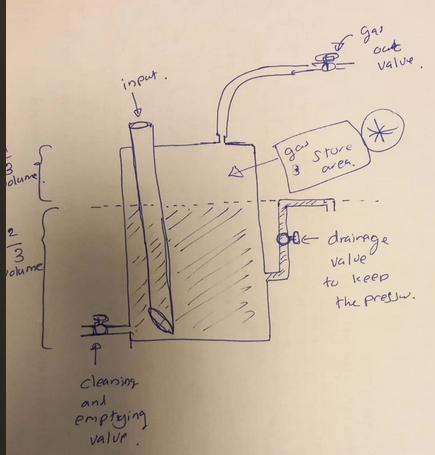 gas
out
valve.
input.
gas
store
area.
3
volume.
2
3
volume
drainage
value
to keep
the pressur.
cleaning
and
emptying
value.